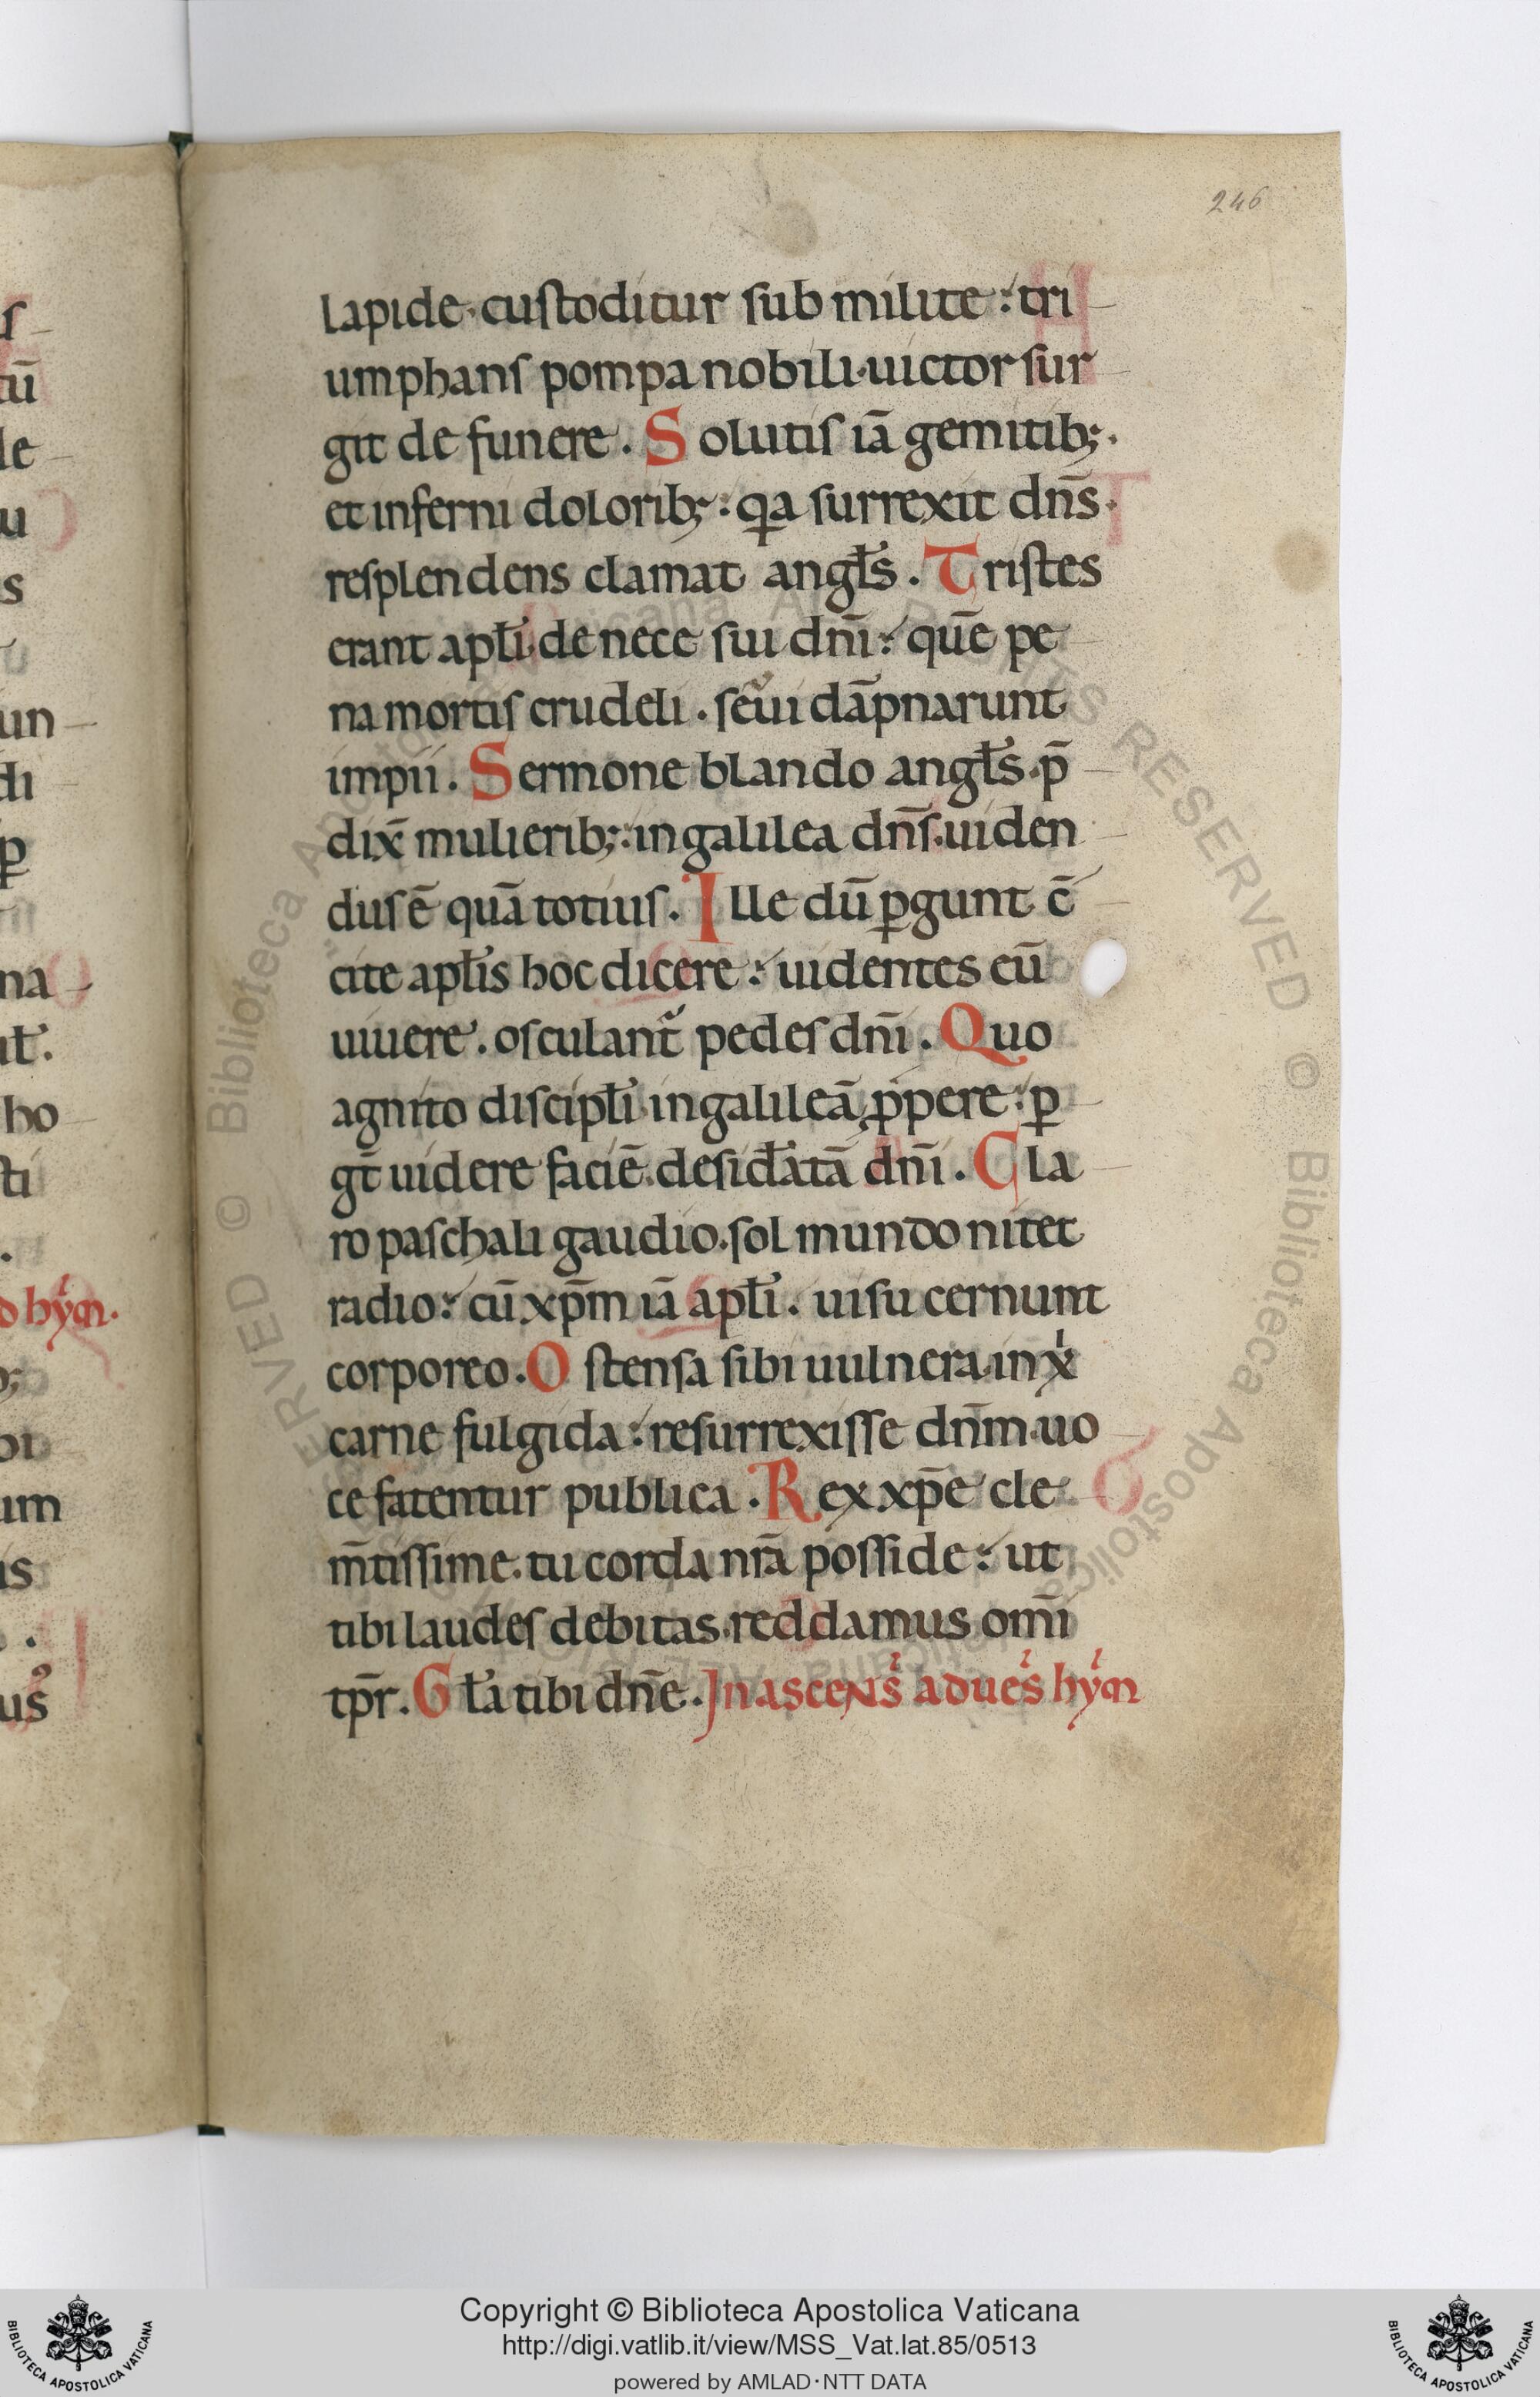 246
lapide· custoditur sub milite : tri
umphans pompa nobili·uictor sur
git de funere . Solutis iā gemitib; .
et inferni dolorib; : qa surrexit dn̄s·
resplendens clamat angl̄s . Tristes
erant apl̄i·de nece sui dn̄i : quē pe
na mortis crudeli . seui dāpnarunt
impii . Sermone blando angl̄s·p̄
dix̄ mulierib; : in galilea dn̄s·uiden
dus ē quā totius . Ille dū ꝑgunt c̄
cite apl̄is hoc dicere : uidentes eū
uiuere . osculant᷑ pedes dn̄i . Quo
agnito discipl̄i·in galileā p̄pere : ꝑ
gt̄ uidere faciē·desid̄atā dn̄i . Cla
ro paschali gaudio·sol mundo nitet
radio : cū xp̄m iā apl̄i . uisu cernunt
corporeo . Ostensa sibi uulnera·in xi
carne fulgida : resurrexisse dn̄m·uo
ce fatentur publica . Rex xp̄e cle
m̄tissime·tu corda nr̄a posside : ut
tibi laudes debitas·reddamus omī
tp̄r . Gl̄a tibi dn̄e . In ascens adues hym
s
tū
le
u
s
un
di
ꝑ
na
ho
sti
hym·
um
is
us
Copyright © Biblioteca Apostolica Vaticana
http://digi.vatlib.it/view/MSS_Vat.lat.85/0513
powered by AMLAD·NTT DATA
BIBLIOTECA APOSTOLICA VATICANA
BIBLIOTECA APOSTOLICA VATICANA